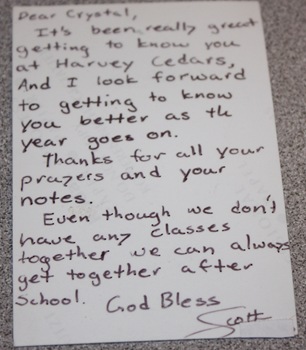 Dear Crystal,
It's been really great
getting to know you
at Harvey Cedars,
And I look forward
to getting to know
you better as the
year goes on.
Thanks for all your
prayers and your
notes.
Even though we don't
have any classes
together we can always
get together after
school. God Bless
Scott